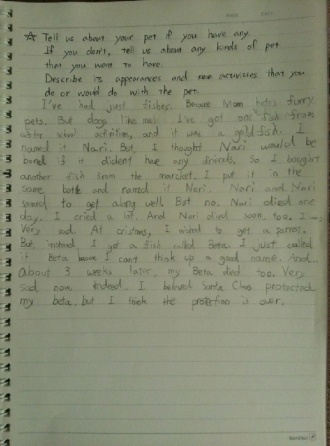 ☆ Tell us about your pet if you have any.
If you don't, tell us about any kinds of pet
that you want to have.
Describe its appearances and activities that you
do or would do with the pet.
I've had just fishes. Because Mom hates furry
pets. But dogs like me. I've got one fish from
school activities, and it was a goldfish. I
named it Nari. But, I thought Nari would be
bored if it dident have any friends. So I bought
another fish from the market. I put it in the
same and named it Nori. Nari and Nori
seemed to get along well. But no. Nari died one
day. I cried a lot. And Nori died soon, too. I
Very sad. At cristmas, I wished to get a parrot.
But, instead, I got a fish called Beta. I just called
it Beta I cant think up a good name. And...
about 3 weeks later, my Beta died too. Very
sad now indeed. I believed Santa Claus protected
my beta, but I think the protection is over.